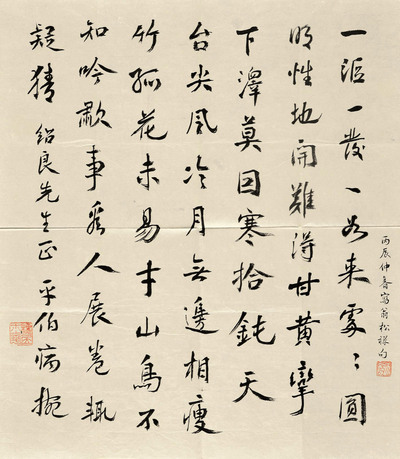 丙辰仲春寫翁松禪句
一漚一發一如來處〻圓
明性地開難得甘黃攣
下澤莫因寒拾鈍天
台尖風冷月無邊相瘦
竹孤花未易才山鳥不
知吟歗事看人展卷輒
疑猜 紹良先生正 平伯病捥